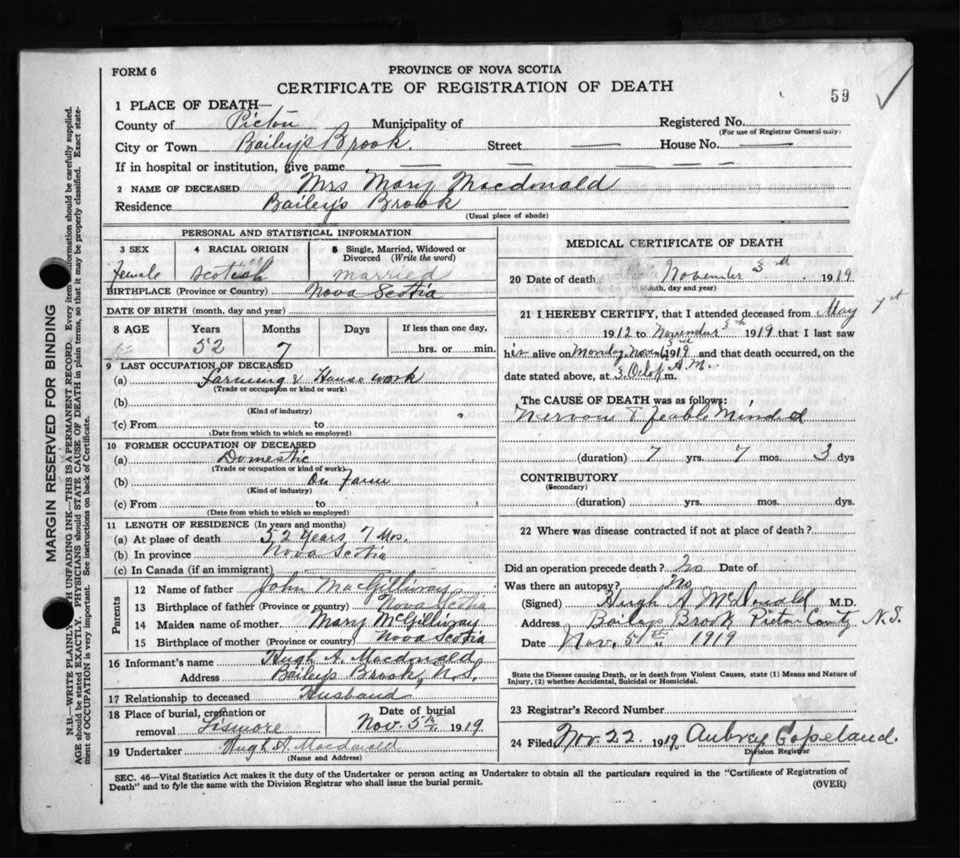 FORM 6
PROVINCE OF NOVA SCOTIA
CERTIFICATE OF REGISTRATION OF DEATH
59
1 PLACE OF DEATH—
County of Pictou Municipality of Registered No.
(For use of Registrar General only)
City or Town Bailey's Brook Street — House No. —
If in hospital or institution, give name
2 NAME OF DECEASED Mrs Mary Macdonald
Residence Bailey's Brook
(Usual place of abode)
PERSONAL AND STATISTICAL INFORMATION
3 SEX 4 RACIAL ORIGIN 5 Single, Married, Widowed or Divorced (Write the word)
Female Scotish Married
BIRTHPLACE (Province or Country) Nova Scotia
DATE OF BIRTH (month, day and year)
8 AGE Years Months Days If less than one day,
52 7 hrs. or min.
9 LAST OCCUPATION OF DECEASED
(a) Farming & House work
(Trade or occupation or kind of work)
(b)
(Kind of industry)
(c) From to
(Date from which to which so employed)
10 FORMER OCCUPATION OF DECEASED
(a) Domestic
(Trade or occupation or kind of work)
(b) On Farm
(Kind of industry)
(c) From to
(Date from which to which so employed)
11 LENGTH OF RESIDENCE (In years and months)
(a) At place of death 52 Years, 7 Mos.
(b) In province Nova Scotia
(c) In Canada (if an immigrant)
Parents
12 Name of father John MacGillivray
13 Birthplace of father (Province or country) Nova Scotia
14 Maiden name of mother Mary McGillivray
15 Birthplace of mother (Province or country) Nova Scotia
16 Informant's name Hugh A. Macdonald
Address Baileys Brook, N.S.
17 Relationship to deceased Husband
18 Place of burial, cremation or removal Lismore Date of burial Nov. 5th 1919
19 Undertaker Hugh A. Macdonald
(Name and Address)
MEDICAL CERTIFICATE OF DEATH
20 Date of death November 3rd 1919
(Month, day and year)
21 I HEREBY CERTIFY, that I attended deceased from May 1st
1912 to November 3rd 1919 that I last saw
his alive on Monday, Nov 3rd 1919 and that death occurred, on the
date stated above, at 3. Oclok A.M. m.
The CAUSE OF DEATH was as follows:
Nervous & Feable Minded
(duration) 7 yrs. 7 mos. 3 dys
CONTRIBUTORY
(Secondary)
(duration) yrs. mos. dys.
22 Where was disease contracted if not at place of death?
Did an operation precede death? No Date of
Was there an autopsy? No
(Signed) Hugh A McDonald M.D.
Address Bailey Brook Pictou County N.S.
Date Nov. 5th 1919
State the Disease causing Death, or in death from Violent Causes, state (1) Means and Nature of
Injury, (2) whether Accidental, Suicidal or Homicidal.
23 Registrar's Record Number
24 Filed Nov. 22 1919 Aubrey Copeland
Division Registrar
SEC. 46—Vital Statistics Act makes it the duty of the Undertaker or person acting as Undertaker to obtain all the particulars required in the "Certificate of Registration of
Death" and to fyle the same with the Division Registrar who shall issue the burial permit.
(OVER)
MARGIN RESERVED FOR BINDING
N.B.—WRITE PLAINLY, WITH UNFADING INK—THIS IS A PERMANENT RECORD. Every item of information should be carefully supplied.
AGE should be stated EXACTLY. PHYSICIANS should STATE CAUSE OF DEATH in plain terms, so that it may be properly classified. Exact statement of OCCUPATION is very important. See instructions on back of Certificate.